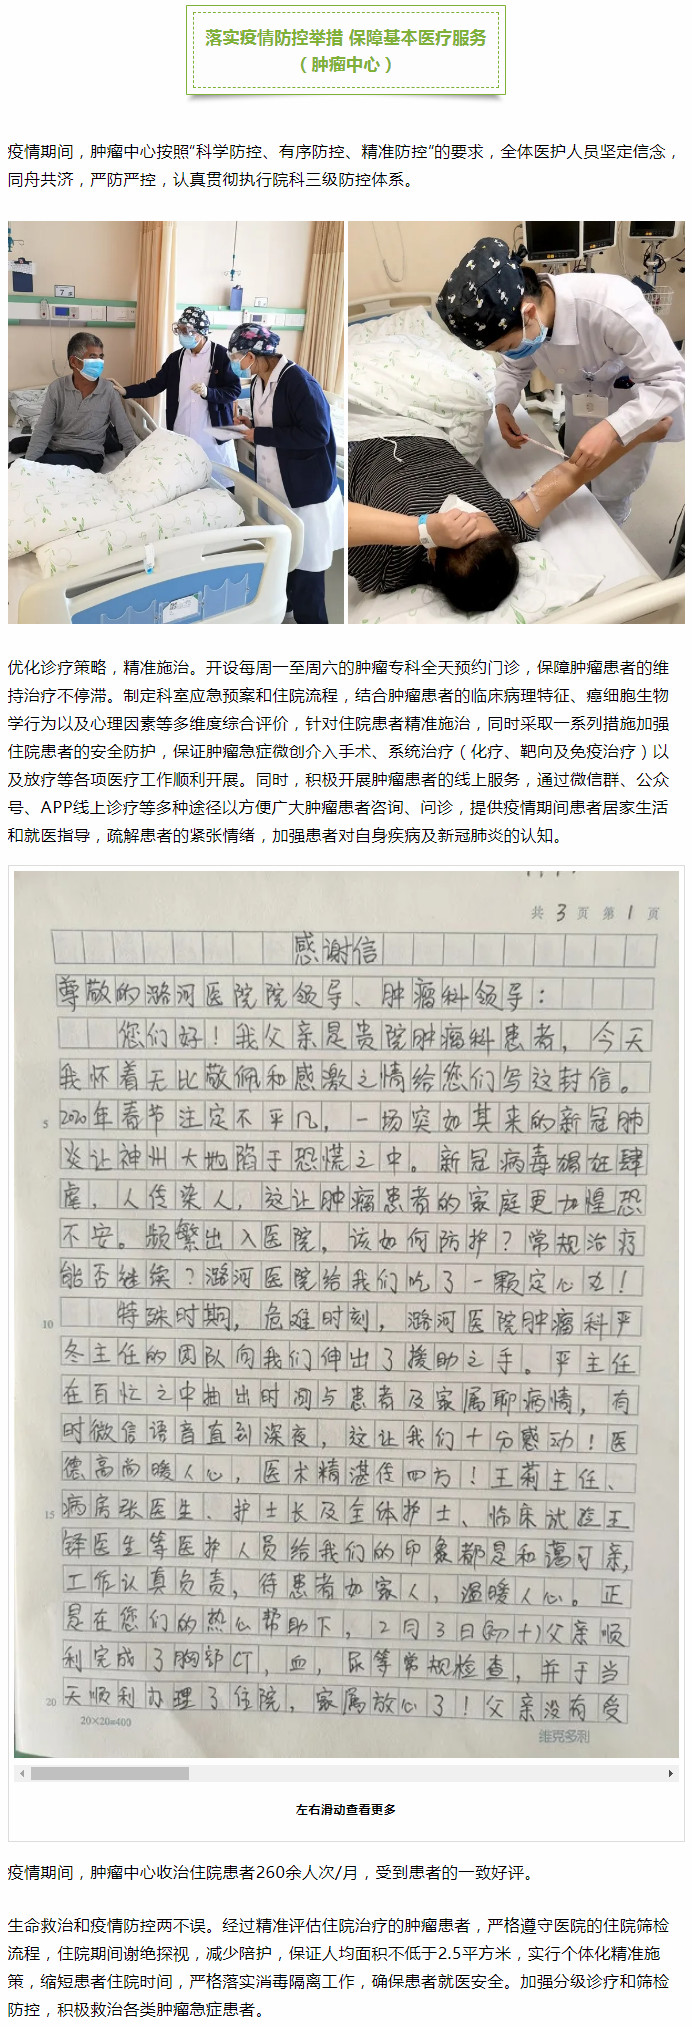 落实疫情防控举措 保障基本医疗服务
（肿瘤中心）
疫情期间，肿瘤中心按照“科学防控、有序防控、精准防控”的要求，全体医护人员坚定信念，
同舟共济，严防严控，认真贯彻执行院科三级防控体系。
7
优化诊疗策略，精准施治。开设每周一至周六的肿瘤专科全天预约门诊，保障肿瘤患者的维
持治疗不停滞。制定科室应急预案和住院流程，结合肿瘤患者的临床病理特征、癌细胞生物
学行为以及心理因素等多维度综合评价，针对住院患者精准施治，同时采取一系列措施加强
住院患者的安全防护，保证肿瘤急症微创介入手术、系统治疗（化疗、靶向及免疫治疗）以
及放疗等各项医疗工作顺利开展。同时，积极开展肿瘤患者的线上服务，通过微信群、公众
号、APP线上诊疗等多种途径以方便广大肿瘤患者咨询、问诊，提供疫情期间患者居家生活
和就医指导，疏解患者的紧张情绪，加强患者对自身疾病及新冠肺炎的认知。
共 3 页 第 1 页
感谢信
尊敬的潞河医院院领导、肿瘤科领导：
您们好！我父亲是贵院肿瘤科患者，今天
我怀着无比敬佩和感激之情给您们写这封信。
5 2020年春节注定不平凡，一场突如其来的新冠肺
炎让神州大地陷于恐慌之中。新冠病毒猖狂肆
虐，人传染人，这让肿瘤患者的家庭更加惶恐
不安。频繁出入医院，该如何防护？常规治疗
能否继续？潞河医院给我们吃了一颗定心丸！
10 特殊时期，危难时刻，潞河医院肿瘤科平
冬主任的团队向我们伸出了援助之手。平主任
在百忙之中抽出时间与患者及家属聊病情，有
时微信语音直到深夜，这让我们十分感动！医
德高尚暖人心，医术精湛传四方！王莉主任、
15 病房张医生、护士长及全体护士、临床试验王
铎医生等医护人员给我们的印象都是和蔼可亲，
工作认真负责，待患者如家人，温暖人心。正
是在您们的热心帮助下，2月3日(初十)父亲顺
利完成了胸部CT，血，尿等常规检查，并于当
20 天顺利办理了住院，家属放心了！父亲没有受
20×20=400
维克多利
左右滑动查看更多
疫情期间，肿瘤中心收治住院患者260余人次/月，受到患者的一致好评。
生命救治和疫情防控两不误。经过精准评估住院治疗的肿瘤患者，严格遵守医院的住院筛检
流程，住院期间谢绝探视，减少陪护，保证人均面积不低于2.5平方米，实行个体化精准施
策，缩短患者住院时间，严格落实消毒隔离工作，确保患者就医安全。加强分级诊疗和筛检
防控，积极救治各类肿瘤急症患者。